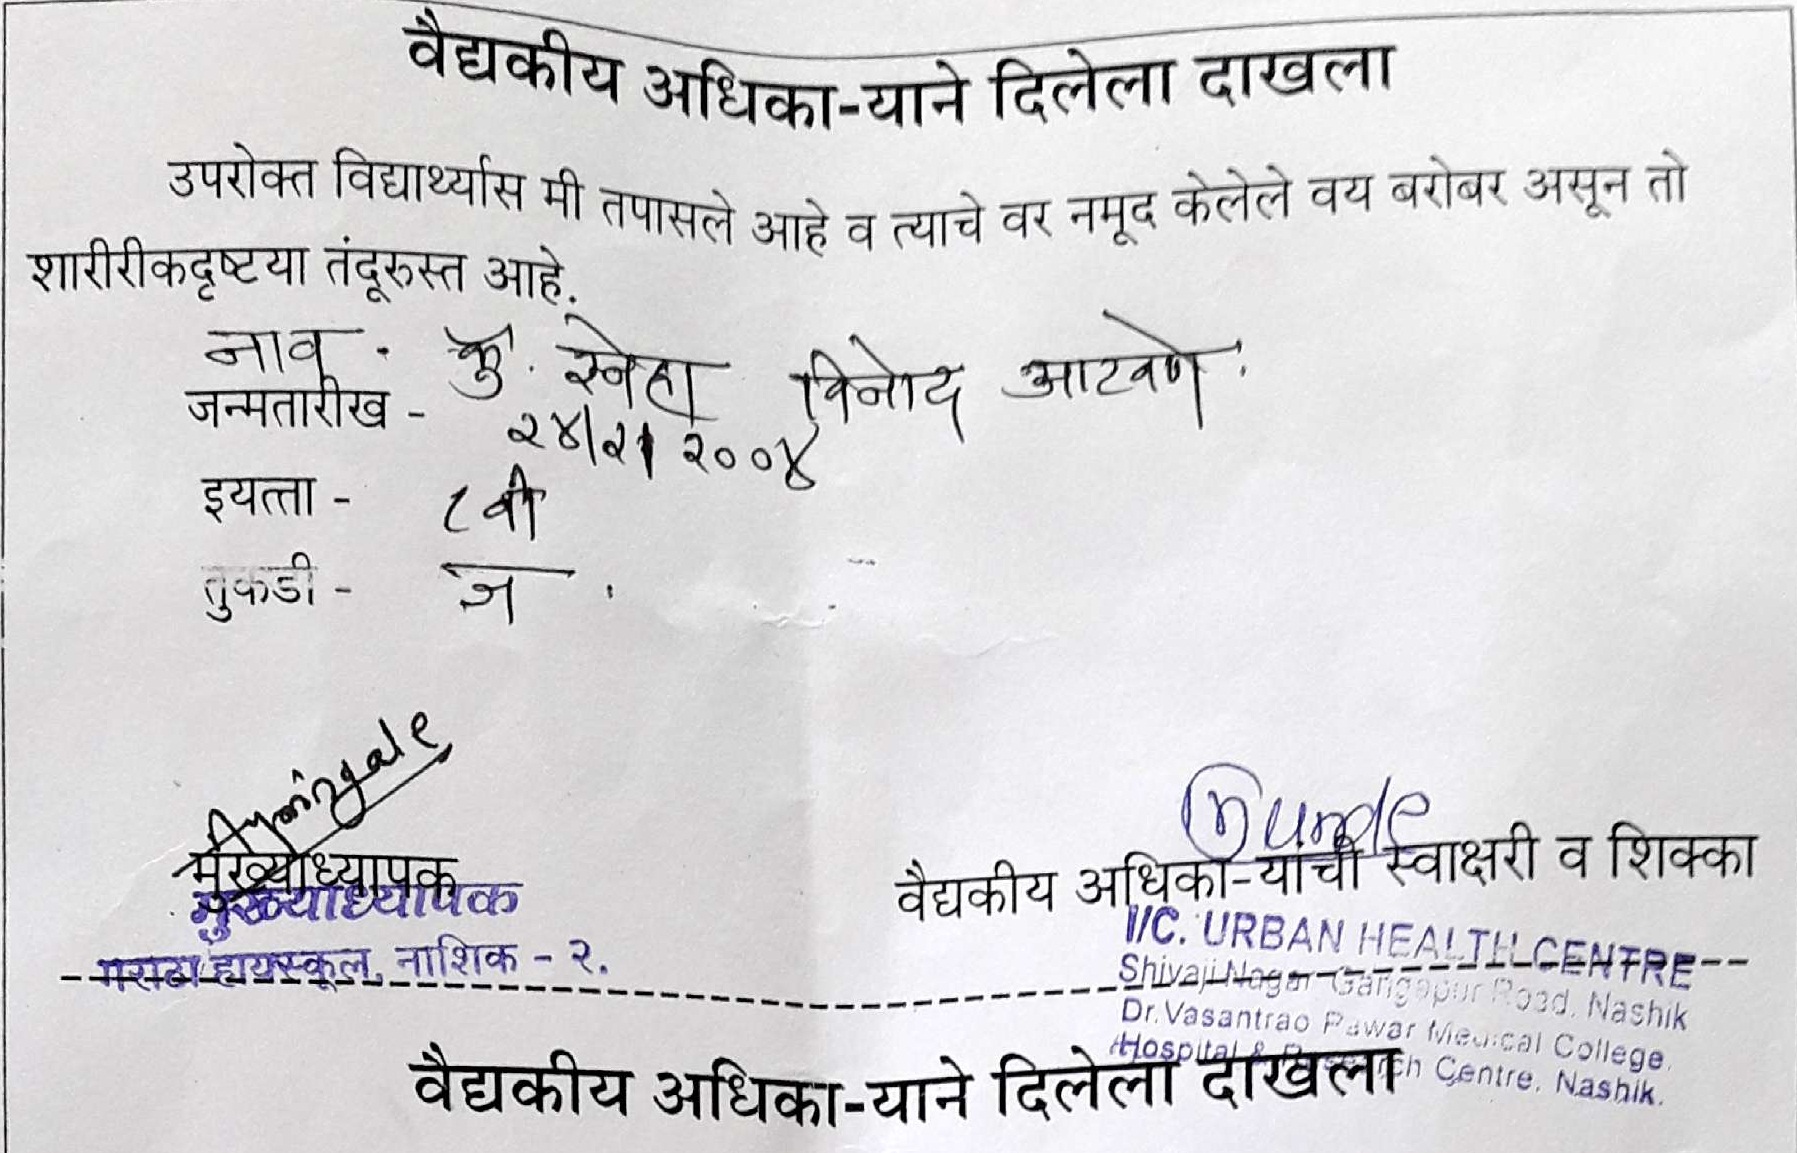 वैद्यकीय अधिका-याने दिलेला दाखला
उपरोक्त विद्यार्थ्यास मी तपासले आहे व त्याचे वर नमूद केलेले वय बरोबर असून तो
शारीरीकदृष्टया तंदूरुस्त आहे.
नाव . कु. स्नेहा विनोद आटवणे.
जन्मतारीख - २४/२/२००४
इयत्ता - ८वी
तुकडी - ज .
मुख्याध्यापक
मुख्याध्यापक
मराठा हायस्कूल, नाशिक - २.
वैद्यकीय अधिका-यांची स्वाक्षरी व शिक्का
I/C. URBAN HEALTH CENTRE
Shivaji Nagar Gangapur Road, Nashik
Dr. Vasantrao Pawar Medical College,
Hospital & Research Centre, Nashik.
वैद्यकीय अधिका-याने दिलेला दाखला